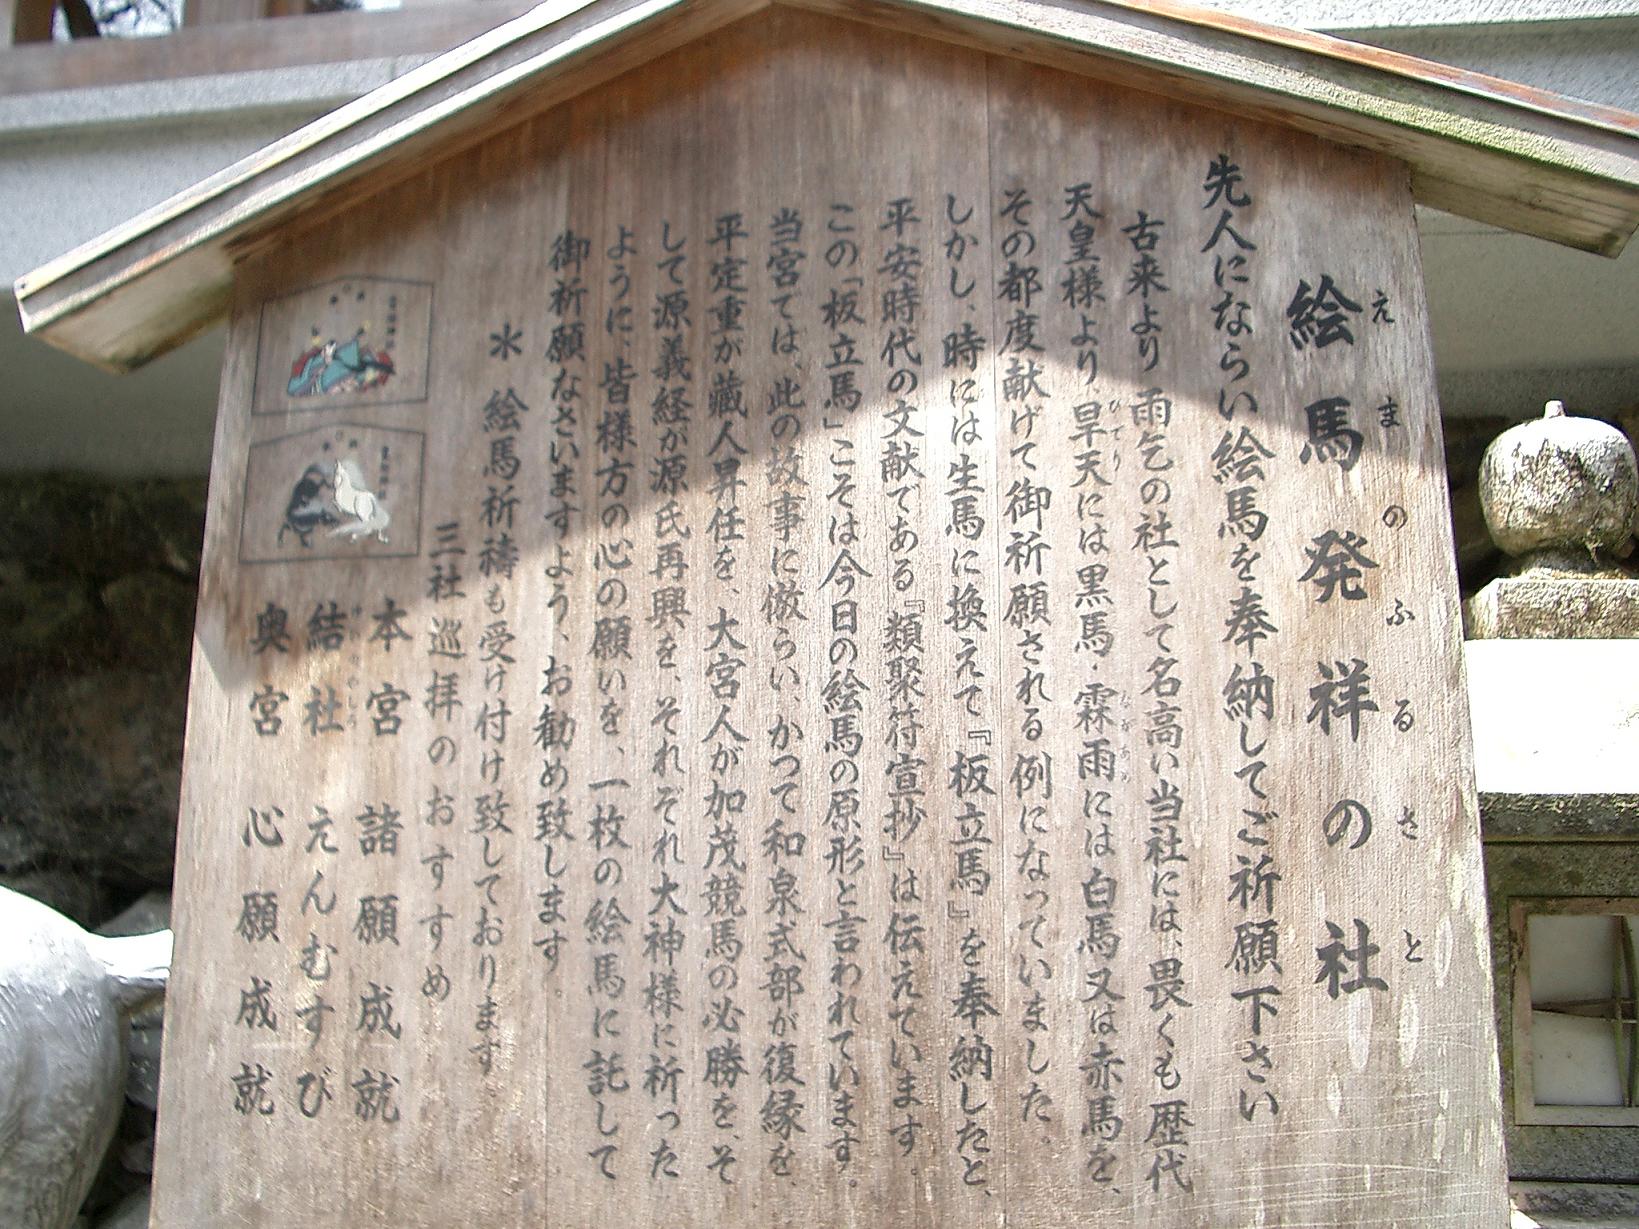 絵馬発祥の社
えまのふるさと
先人にならい絵馬を奉納してご祈願下さい
古来より雨乞の社として名高い当社には、畏くも歴代
天皇様より、旱天には黒馬・霖雨には白馬又は赤馬を、
ひでり
ながあめ
その都度献げて御祈願される例になっていました。
しかし、時には生馬に換えて『板立馬』を奉納したと、
平安時代の文献である『類聚符宣抄』は伝えています。
この「板立馬」こそは今日の絵馬の原形と言われています。
当宮では、此の故事に倣らい、かつて和泉式部が復縁を、
平定重が蔵人昇任を、大宮人が加茂競馬の必勝を、そ
して源義経が源氏再興を、それぞれ大神様に祈った
ように、皆様方の心の願いを、一枚の絵馬に託して
御祈願なさいますよう、お勧め致します。
＊ 絵馬祈祷も受け付け致しております
三社巡拝のおすすめ
本宮 諸願成就
結社 えんむすび
奥宮 心願成就